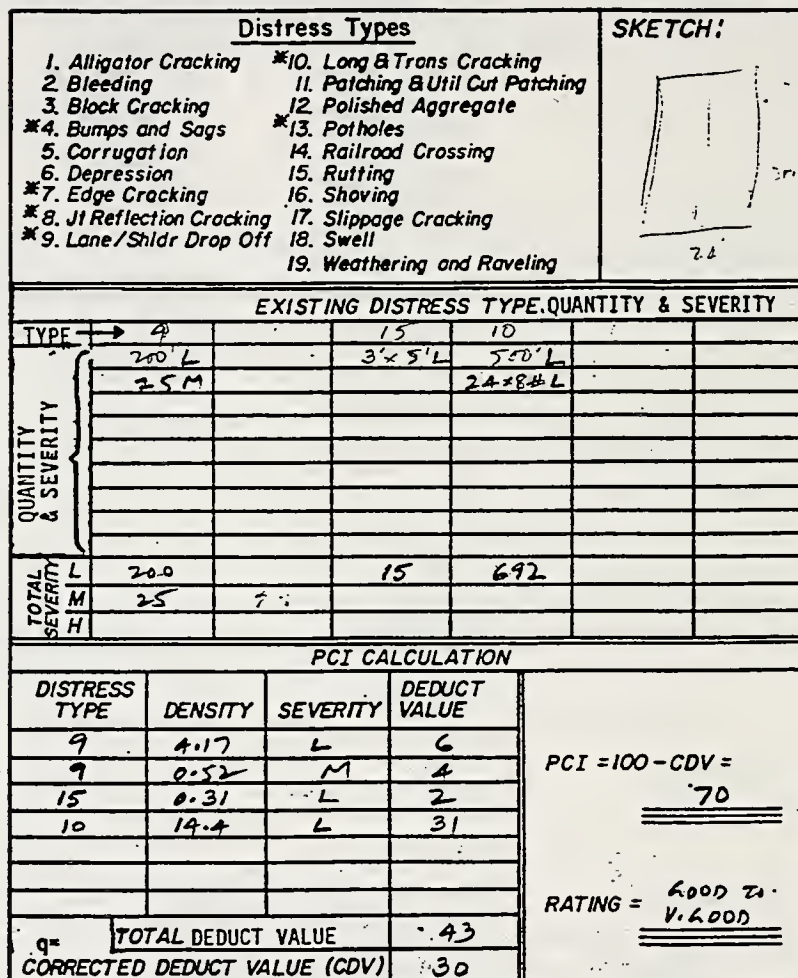 Distress Types
1. Alligator Cracking
2. Bleeding
3. Block Cracking
*4. Bumps and Sags
5. Corrugation
6. Depression
*7. Edge Cracking
*8. Jt Reflection Cracking
*9. Lane/Shldr Drop Off
*10. Long & Trans Cracking
11. Patching & Util Cut Patching
12. Polished Aggregate
*13. Potholes
14. Railroad Crossing
15. Rutting
16. Shoving
17. Slippage Cracking
18. Swell
19. Weathering and Raveling
SKETCH:
EXISTING DISTRESS TYPE, QUANTITY & SEVERITY
TYPE → 9 15 10
QUANTITY & SEVERITY
200' L 3'x5'L 500' L
25 M 24x8#L
TOTAL SEVERITY
L 200 15 692
M 25
H
PCI CALCULATION
DISTRESS TYPE DENSITY SEVERITY DEDUCT VALUE
9 4.17 L 6
9 0.52 M 4
15 0.31 L 2
10 14.4 L 31
q= TOTAL DEDUCT VALUE 43
CORRECTED DEDUCT VALUE (CDV) 30
PCI = 100 - CDV =
70
RATING = GOOD TO
V. GOOD